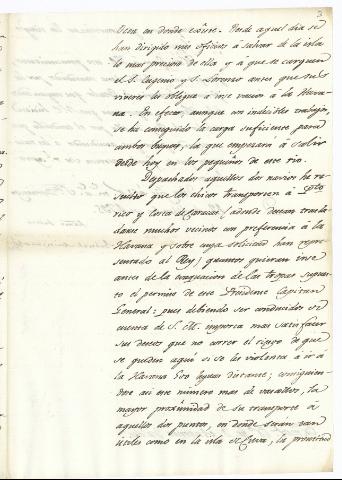 3
en donde existe. Desde aquel dia se
han dirigido mis oficios à salvar de la isla
lo mas precioso de ella y à que se carguen
el S. Eugenio y S. Lorenzo antes que sus
viveres les obligue à irse vacios à la Hava-
na. En efecto, aunque con indecibles trabajos,
se ha conseguido la carga suficiente para
ambos buques, la que empezará à salir
desde hoy en los pequeños de este rio.
Despachados aquellos dos navios he re-
suelto que los chicos transporten à Pto
rico y Costa de Caracas (adonde desean trasla-
darse muchos vecinos con preferencia à la
Havana y sobre cuya solicitud han repre-
sentado al Rey) quantos quieran irse
antes de la evaquacion de las tropas supues-
to el permiso de este Presidente Capitan
General: pues debiendo ser conducidos de
cuenta de S. M. importa mas satisfacer
sus deseos que no correr el riesgo de que
se queden aqui si se les violenta à ir à
la Havana 300 leguas distante; consiguien-
dose asi este numero mas de vasallos, la
mayor proximidad de su transporte à
aquellos dos puntos, en donde seran tan
utiles como en la isla de Cuba, la prontitud